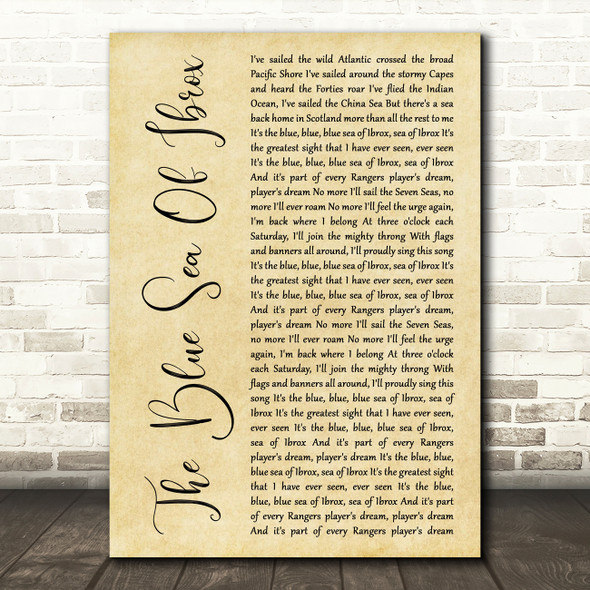 The Blue Sea Of Ibrox
I've sailed the wild Atlantic crossed the broad
Pacific Shore I've sailed around the stormy Capes
and heard the Forties roar I've flied the Indian
Ocean, I've sailed the China Sea But there's a sea
back home in Scotland more than all the rest to me
It's the blue, blue, blue sea of Ibrox, sea of Ibrox It's
the greatest sight that I have ever seen, ever seen
It's the blue, blue, blue sea of Ibrox, sea of Ibrox
And it's part of every Rangers player's dream,
player's dream No more I'll sail the Seven Seas, no
more I'll ever roam No more I'll feel the urge again,
I'm back where I belong At three o'clock each
Saturday, I'll join the mighty throng With flags
and banners all around, I'll proudly sing this song
It's the blue, blue, blue sea of Ibrox, sea of Ibrox It's
the greatest sight that I have ever seen, ever seen
It's the blue, blue, blue sea of Ibrox, sea of Ibrox
And it's part of every Rangers player's dream,
player's dream No more I'll sail the Seven Seas, no
more I'll ever roam No more I'll feel the urge
again, I'm back where I belong At three o'clock
each Saturday, I'll join the mighty throng With
flags and banners all around, I'll proudly sing this
song It's the blue, blue, blue sea of Ibrox, sea of
Ibrox It's the greatest sight that I have ever seen,
ever seen It's the blue, blue, blue sea of Ibrox,
sea of Ibrox And it's part of every Rangers
player's dream, player's dream It's the blue, blue,
blue sea of Ibrox, sea of Ibrox It's the greatest sight
that I have ever seen, ever seen It's the blue,
blue, blue sea of Ibrox, sea of Ibrox And it's part
of every Rangers player's dream, player's dream
And it's part of every Rangers player's dream